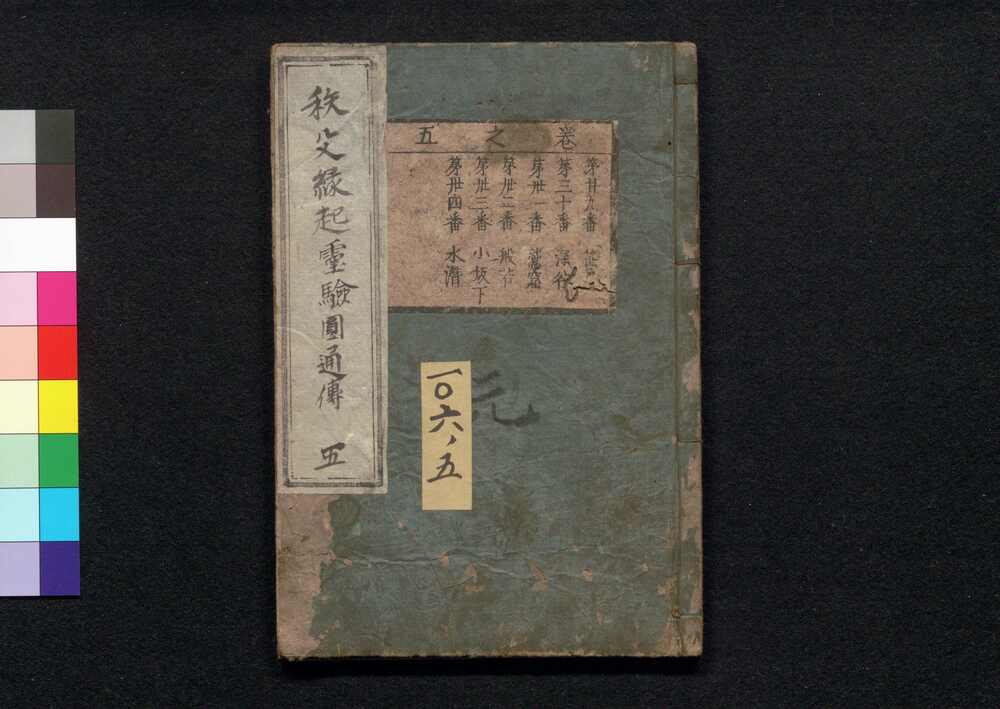 卷之五
第廿九番
第三十番 深谷
第卅一番 鷲窟
第卅二番 般若
第卅三番 小坂下
第卅四番 水潜
元
一〇六ノ五
秩父縁起靈驗圓通傳 五